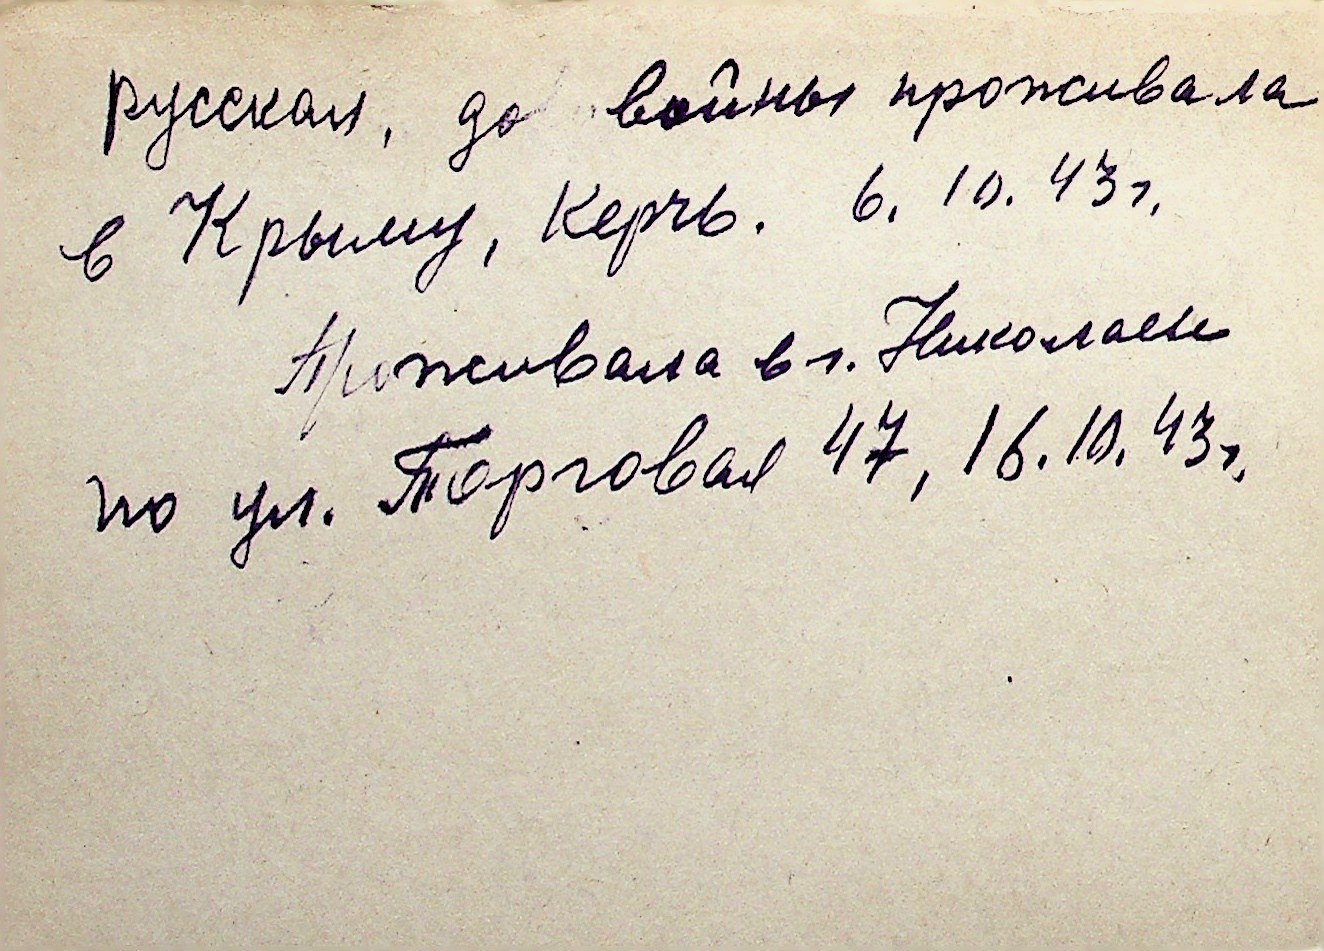 русская, до войны проживала
в Крыму, Керчь. 6. 10. 43г.
Проживала в г. Николаеве
по ул. Торговая 47, 16.10.43г.